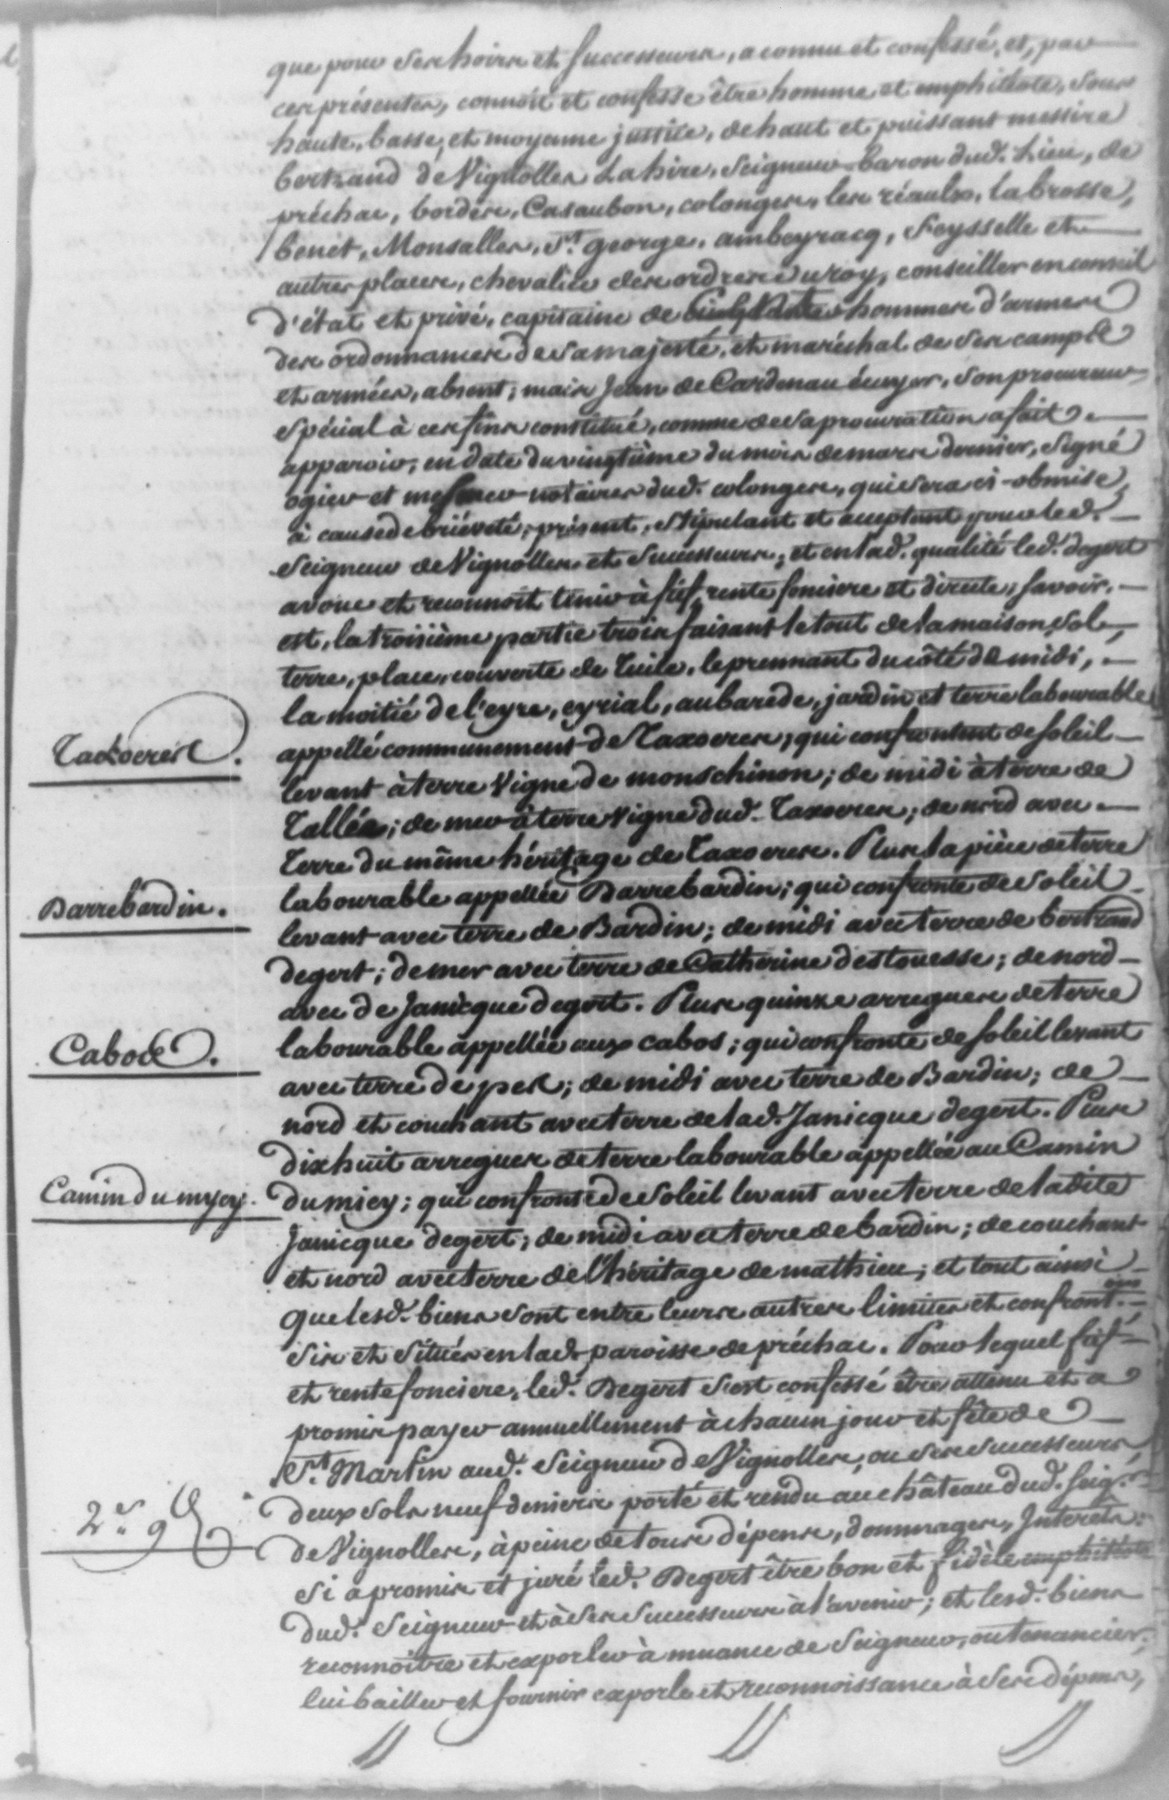 que pour ses hoirs et successeurs, a connu et confessé, et, par
ces présentes, connoit et confesse être homme et emphitéote, sous
haute, basse, et moyenne justice, de haut et puissant messire
bertrand de Vignolles Lahire, Seigneur baron dud. Lieu, de
préchac, bordès, Casaubon, colonges, les réaulx, la brosse,
benét, Monsalles, St. george, ambeyracq, Seysselle et
autres places, chevalier des ordres du roy, conseiller en conseil
d'état et privé, capitaine de hommes d'armes
des ordonnances de sa majesté, et maréchal de ses camps
et armées, absent; mais Jean de Cardenau écuyer, son procureur
spécial à ces fins constitué, comme de sa procuration a fait
apparoir, en date du vingtième du mois de mars dernier, signé
ogier et notaires dud. colonges, qui sera ci-obmise,
à cause de briéveté, présent, stipulant et acceptant pour led.
Seigneur de Vignolles et Successeurs; et en lad. qualité led. degert
avoue et reconnoit tenir à fief, rente fonciere et directe, savoir,
est, la troisième partie trois faisant le tout de la maison, sol,
terre, place, couverte de tuile, le prennant du côté de midi,
la moitié de l'eyre, eyrial, aubarède, jardin et terre labourable
Taxoeres.
appellé communement de Taxoeres; qui confrontent de soleil
levant à terre vigne de monschinon; de midi à terre de
Tallée; de mer à terre vigne dud. Taxoeres; de nord avec
terre du même héritage de Taxoeres. Plus la pièce de terre
Barrebardin.
labourable appellée Barrebardin; qui confronte de soleil
levant avec terre de Bardin; de midi avec terre de bertrand
degert; de mer avec terre de Catherine destouesse; de nord
avec de Janicque degert. Plus quinze arregues de terre
Cabos.
labourable appellée aux cabos; qui confronte de soleil levant
avec terre de pes; de midi avec terre de Bardin; de
nord et couchant avec terre de lad. Janicque degert. Plus
dix huit arregues de terre labourable appellée au Camin
Camin du mycy.
du miey; qui confronte de soleil levant avec terre de ladite
Janicque degert; de midi avec terre de bardin; de couchant
et nord avec terre de l'héritage de mathieu; et tout ainsi
que lesd. biens sont entre leurs autres limites et confront.ons
sis et situés en lad. paroisse de préchac. Pour lequel fief
et rente fonciere, led. Degert s'est confessé être attenu et a
promis payer annuellement à chacun jour et fête de
St. Martin aud. Seigneur de Vignolles, ou ses successeurs
2.s 9.d
deux sols neuf deniers porté et rendu au château dud. Seig.r
de Vignolles, à peine de tous dépens, dommages, Interets.
Si a promis et juré led. Degert être bon et fidèle emphitéote
dud. Seigneur et à ses successeurs à l'avenir; et lesd. biens
reconnoître et exporler à muance de Seigneur, ou tenancier,
lui bailler et fournir exporle et reconnoissance à ses dépens,